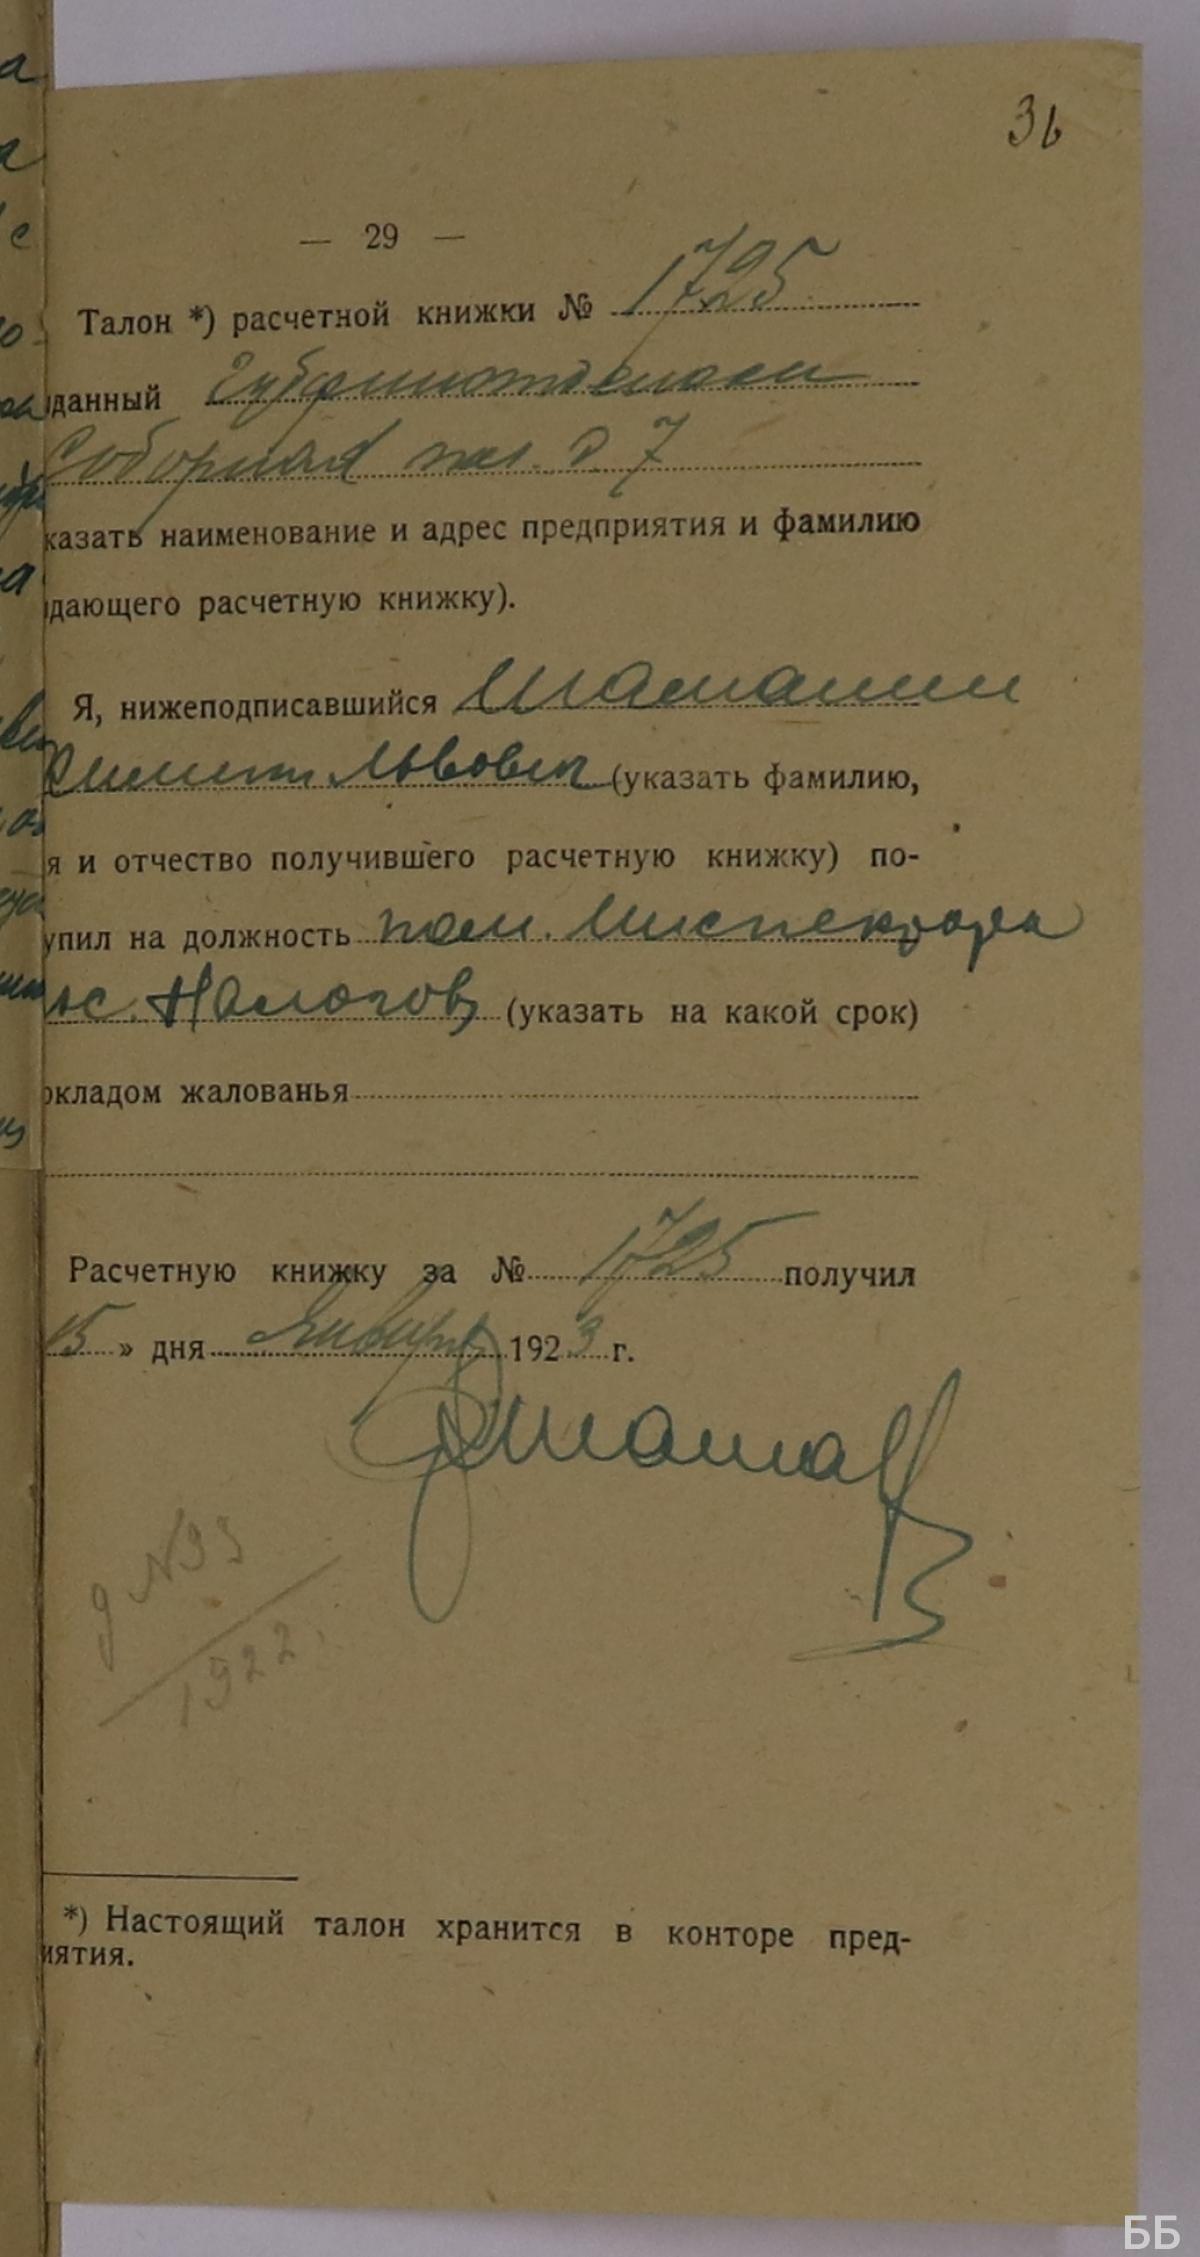 36
— 29 —
Талон *) расчетной книжки № 1725
данный Губфинотделом
Соборная пл. д 7
казать наименование и адрес предприятия и фамилию
дающего расчетную книжку).
Я, нижеподписавшийся Шаманин
Львович (указать фамилию,
я и отчество получившего расчетную книжку) по-
упил на должность пом. Инспектора
Налогов (указать на какой срок)
окладом жалованья
Расчетную книжку за № 1725 получил
15 » дня Января 1923 г.
д N 93
1922
*) Настоящий талон хранится в конторе пред-
иятия.
ББ